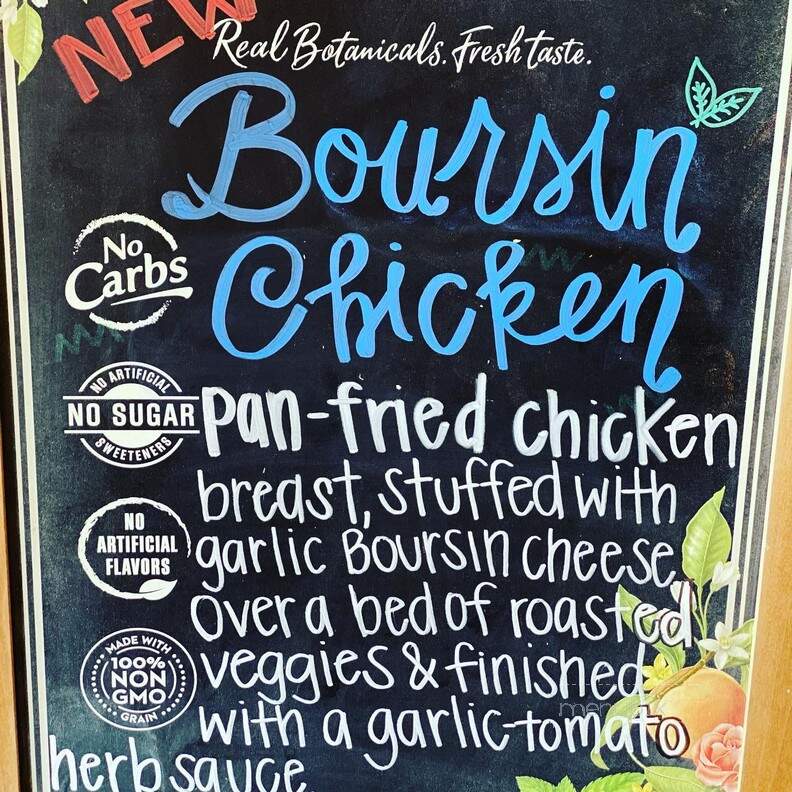 NEW
Real Botanicals. Fresh taste.
Boursin
Chicken
No
Carbs
NO ARTIFICIAL
NO SUGAR
SWEETENERS
NO
ARTIFICIAL
FLAVORS
MADE WITH
100%
NON
GMO
GRAIN
pan-fried chicken
breast, stuffed with
garlic Boursin cheese,
over a bed of roasted
veggies & finished
with a garlic-tomato
herb sauce.